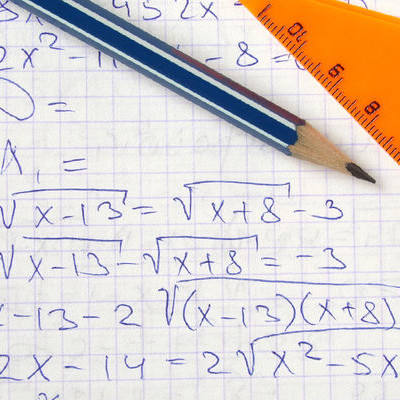 452x
2x² - 11 - 8 =
D =
=
√x-13 = √x+8 - 3
√x-13 - √x+8 = -3
-13 - 2 √(x-13)(x+8)
2x - 14 = 2√x² - 5x
10 9 8